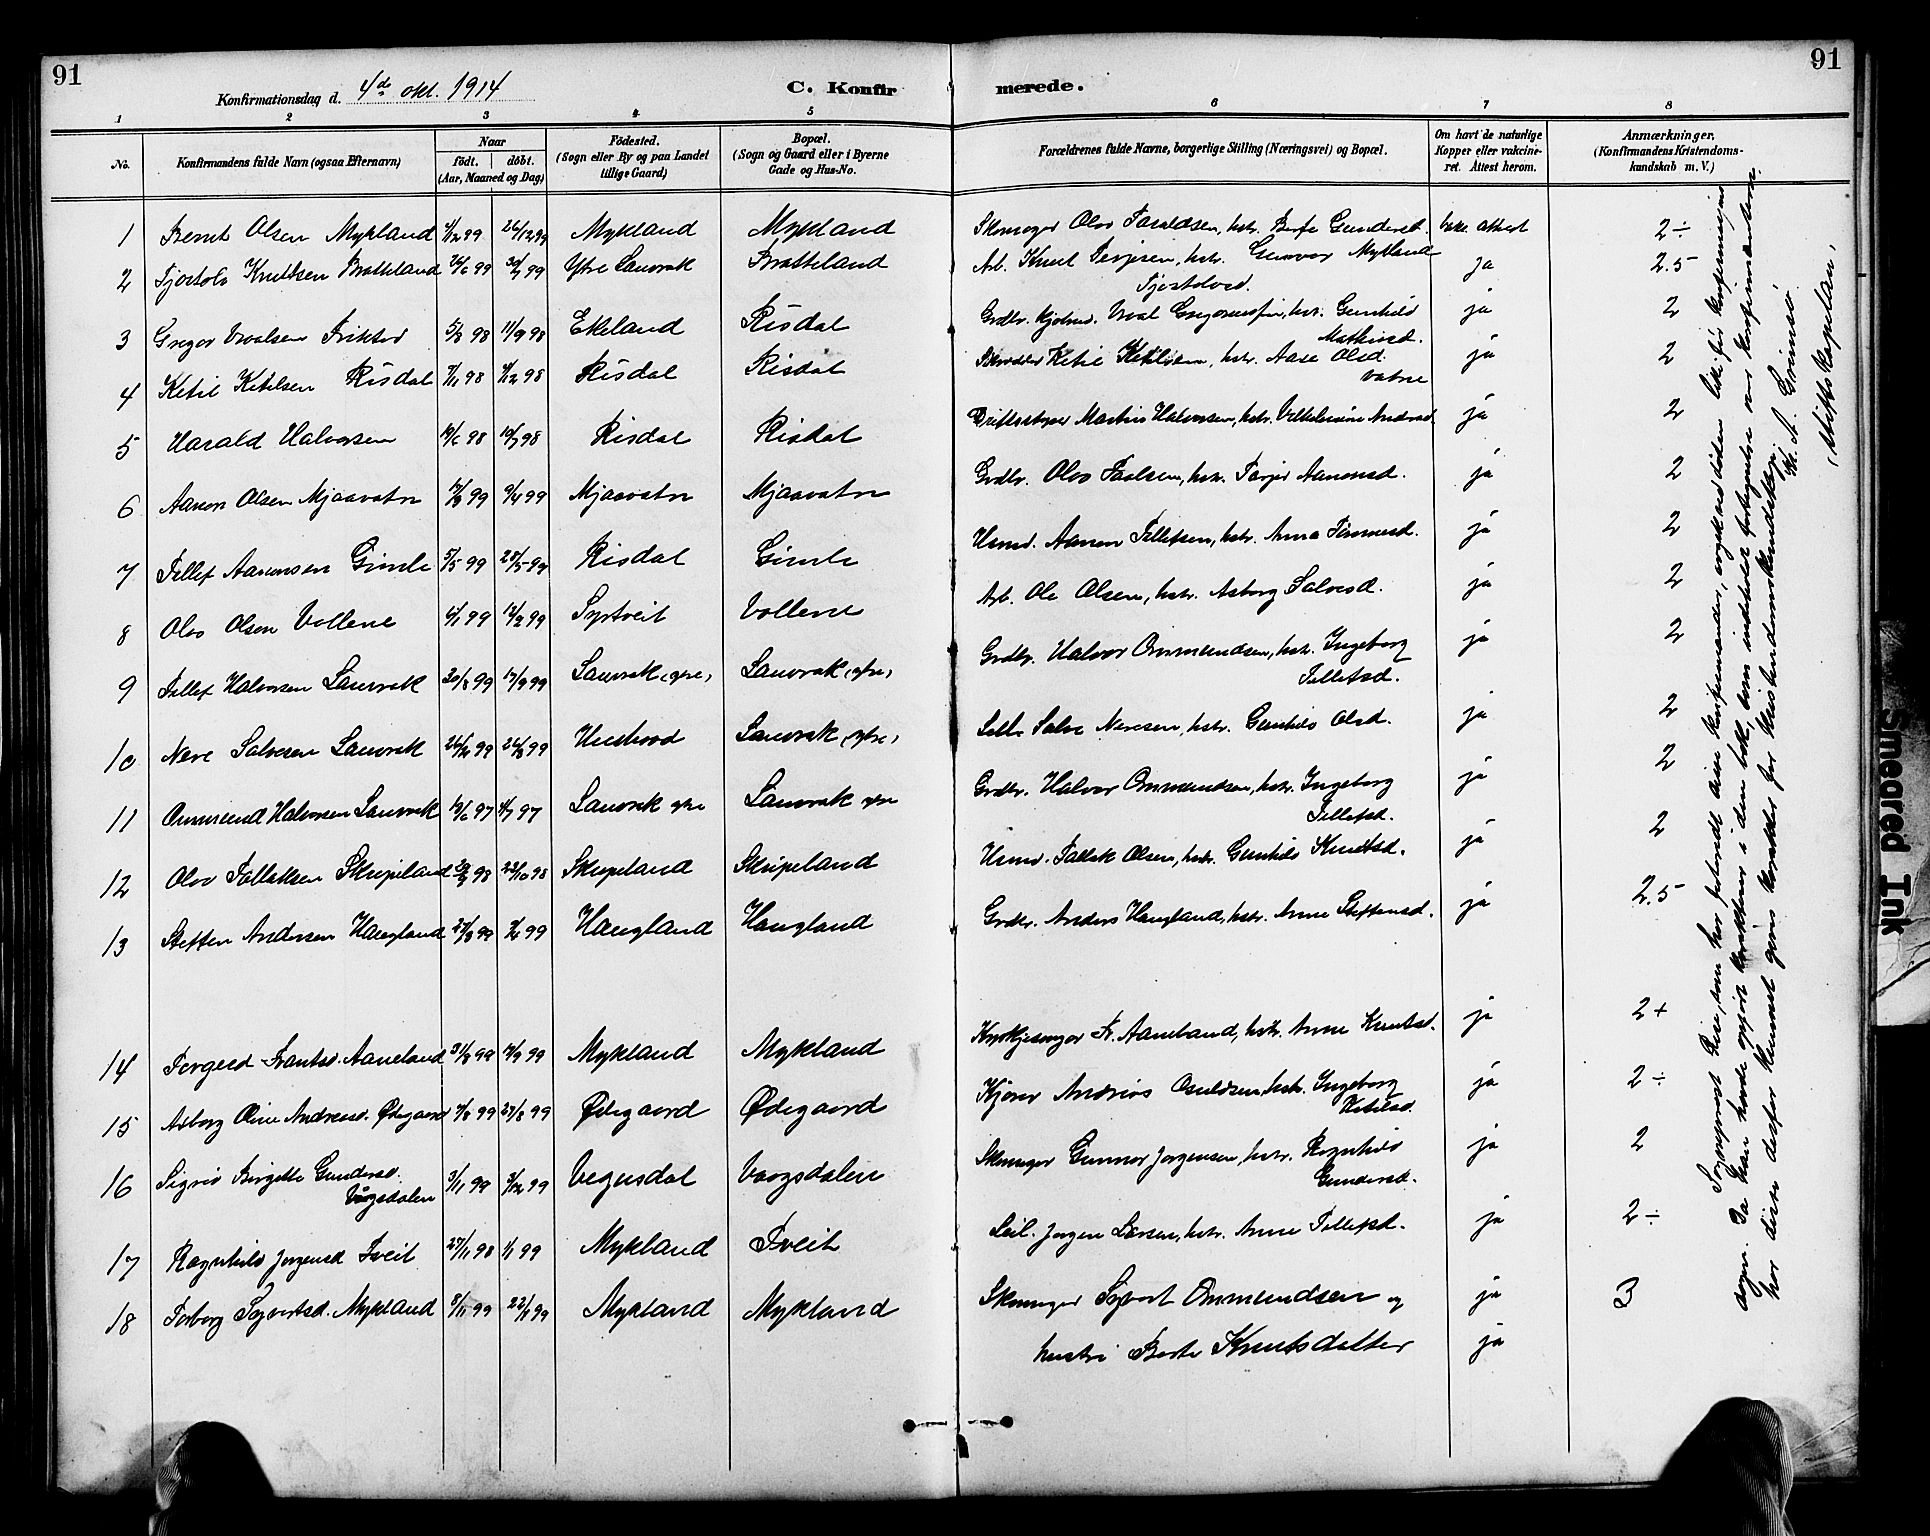 91
91
Konfirmationsdag d. 4de okt. 1914
C. Konfir merede.
1 2 3 4 5 6 7 8
No. Konfirmandens fulde Navn (ogsaa Efternavn) Naar født. døbt. (Aar, Maaned og Dag) Fødested. (Sogn eller By og paa Landet tillige Gaard) Bopæl. (Sogn og Gaard eller i Byerne Gade og Hus-No. Forældrenes fulde Navne, borgerlige Stilling (Næringsvei) og Bopæl. Om havt de naturlige Kopper eller vakcineret. Attest herom. Anmærkninger. (Konfirmandens Kristendomskundskab m. V.)
1 Bernt Olsen Mykland 26/12 99 Mykland Mykland Skomager Olav Taraldsen, hstr. Berte Gundersd. ikke attest 2÷
2 Tjostolv Knutsen Bratteland 26/6 99 30/7 99 Ytre Lauvrak Bratteland Arb. Knut Terjesen, hstr. Gunvor Mykland Tjostolvsd. ja 2.5
3 Gregor Vraalsen 5/8 98 11/9 98 Ekeland Risdal Grdbr. Vraal Gregoriussen, hstr. Gunhild ja 2
4 Ketil Ketilsen Risdal 7/11 98 4/12 98 Risdal Risdal Skrædder Ketil Ketilsen, hstr. Aase Olsd. Vatne ja 2
5 Harald Halvorsen 19/6 98 10/7 98 Risdal Risdal Martin Halvorsen, hstr. Vilhelmine Andrsd. ja 2
6 Aanon Olsen Mjaavatn 17/3 99 9/4 99 Mjaavatn Mjaavatn Grdbr. Olav Paalsen, hstr. Torjer Aanonsd. ja 2
7 Tellef Aanonsen Gimle 5/5 99 28/5 99 Risdal Gimle Husmd. Aanon Tellefsen, hstr. Anna ja 2
8 Olav Olsen Vollene 4/1 99 12/2 99 Syrtveit Vollene Arb. Ole Olsen, hstr. Asborg Salvesd. ja 2
9 Tellef Halvorsen Lauvrak 30/8 99 17/9 99 Lauvrak (ytre) Lauvrak (ytre) Grdbr. Halvor Ommundsen, hstr. Ingeborg Tellefsd. ja 2
10 Nere Salvesen Lauvrak 26/2 99 26/3 99 Lauvrak (ytre) Salve Neresen, hstr. Gunhild Olsd. ja 2
11 Ommund Halvorsen Lauvrak 19/6 97 4/7 97 Lauvrak ytre Lauvrak ytre Grdbr. Halvor Ommundsen, hstr. Ingeborg Tellefsd. ja 2
12 Olav Tallaksen Skripeland 29/9 98 23/10 98 Skripeland Skripeland Husmd. Tallak Olsen, hstr. Gunhild Knutsd. ja 2
13 Steffen Andersen Haugland 27/3 99 99 Haugland Haugland Grdbr. Anders Haugland, hstr. Anne Steffensd. ja 2.5
14 Torgerd Frantsd. Aaneland 31/8 99 99 Mykland Mykland Kyrkjesongar Fr. Aaneland, hstr. Anne Knutsd. ja 2+
15 Asborg Oline Andreasd. Ødegaard 7/8 99 27/8 99 Ødegaard Ødegaard Kjører Andreas Osuldsen, hstr. Ingeborg Ketilsd. ja 2÷
16 Sigrid Birgitte Gundersd. Vågsdalen 3/11 99 3/12 99 Vegusdal Vaagsdalen Skomager Gunnar Jørgensen, hstr. Ragnhild Gundersd. ja 2
17 Ragnhild Jørgensd Tveit 27/11 98 1/1 99 Mykland Tveit Leil. Jørgen Larsen, hstr. Anne Tellefsd. ja 2÷
18 Torborg Sigvartsd. Mykland 8/11 99 Mykland Mykland Skomager Sigvart Ommundsen og ja 3
hustri Berte Knutsdatter ja
Sogneprest Riise, som har forberedt disse konfirmander, avgik ved døden like før konfirmasjonsdagen. Da han havde opgjort karakterer i den bok, som indeholdt protokollen om konfirmanterne
har disse derfor kunnet gives karakter for kristendomskundskap.
M. A. Grimsø.
(Stiftskapelan)
Smeared Ink